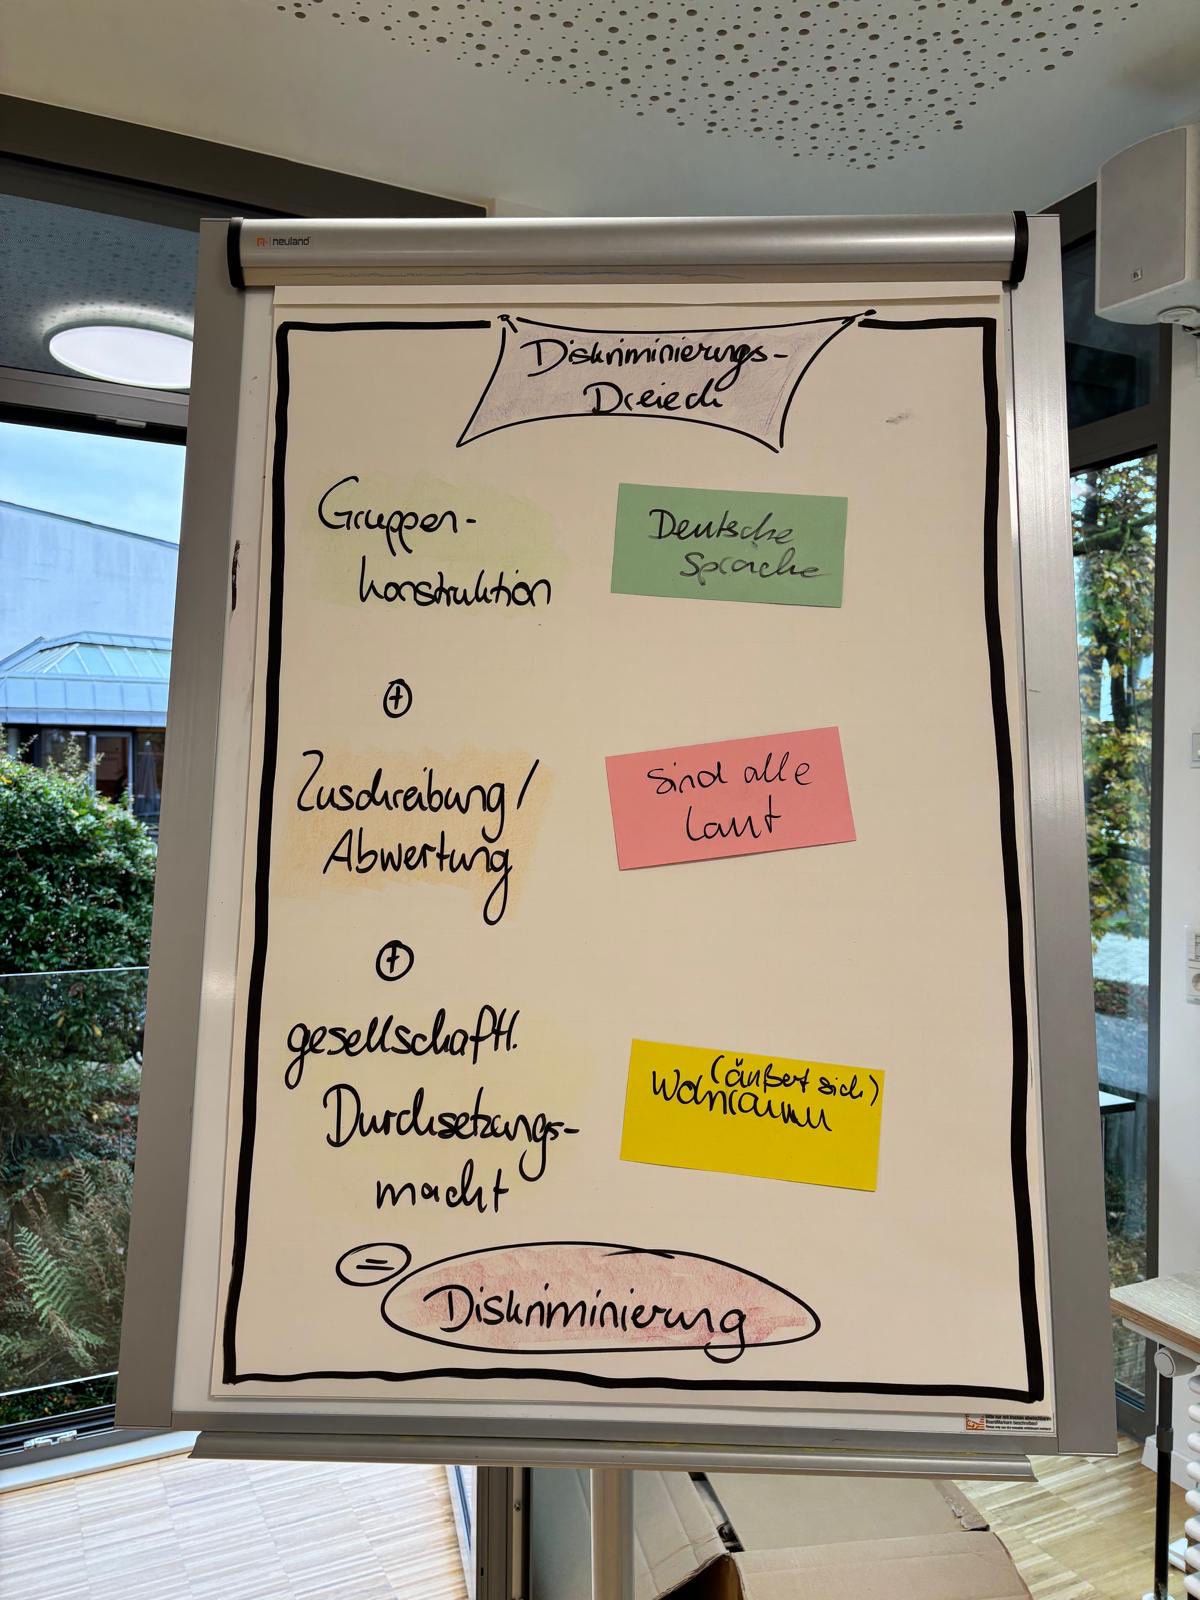 neuland
Diskriminierungs-
Dreieck
Gruppen-
konstruktion
Deutsche
Sprache
+
Zuschreibung/
Abwertung
Sind alle
laut
+
gesellschaftl.
Durchsetzungs-
macht
(äußert sich)
Wohnraum
=
Diskriminierung